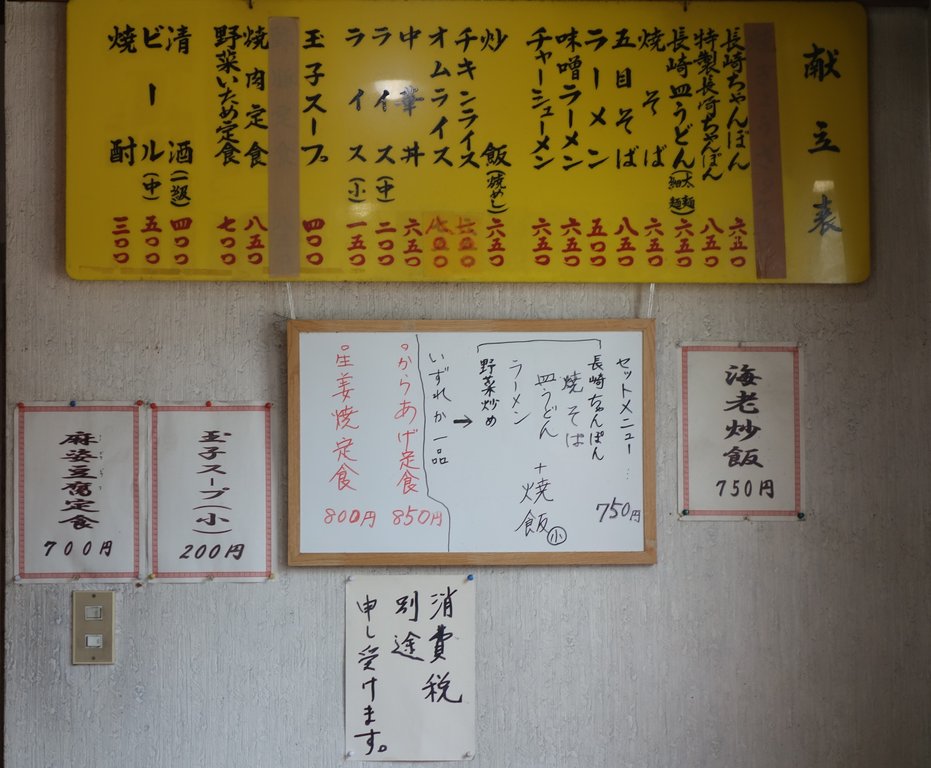 献立表
長崎ちゃんぽん 六五〇
特製長崎ちゃんぽん 八五〇
長崎皿うどん(太麺 細麺) 六五〇
焼そば 六五〇
五目そば 八五〇
ラーメン 五〇〇
味噌ラーメン 六五〇
チャーシューメン 六五〇
炒飯(焼めし) 六五〇
チキンライス
オムライス
中華丼 六五〇
ライス(中) 二〇〇
ライス(小) 一五〇
玉子スープ 四〇〇
焼肉定食 八五〇
野菜いため定食 七〇〇
清酒(一級) 四〇〇
ビール(中) 五〇〇
焼酎 三〇〇
セットメニュー… 750円
長崎ちゃんぽん
焼そば
皿うどん
ラーメン
野菜炒め
+焼飯(小)
→
いずれか一品
°からあげ定食 850円
°生姜焼定食 800円
海老炒飯
750円
玉子スープ(小)
200円
麻婆豆腐定食
700円
消費税
別途
申し受けます。